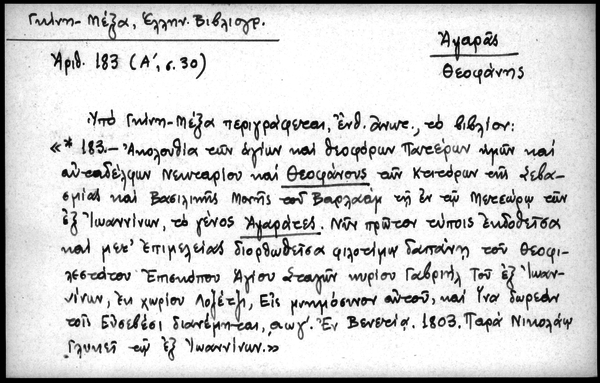 Γκίνη-Μέξα, Ἑλλην. Βιβλιογρ.
Ἀριθ. 183 (Α΄, σ. 30)
Ἀγαρᾶς
Θεοφάνης
Ὑπὸ Γκίνη-Μέξα περιγράφεται, ἔνθ. ἀνωτ., τὸ βιβλίον:
«* 183.- Ἀκολουθία τῶν ἁγίων καὶ θεοφόρων Πατέρων ἡμῶν καὶ
αὐταδέλφων Νεκταρίου καὶ Θεοφάνους τῶν Κτητόρων τῆς Σεβα-
σμίας καὶ Βασιλικῆς Μονῆς τοῦ Βαρλαὰμ τῆς ἐν τῷ Μετεώρῳ τῶν
ἐξ Ἰωαννίνων, τὸ γένος Ἀγαράτες. Νῦν πρῶτον τύποις ἐκδοθεῖσα
καὶ μετ' ἐπιμελείας διορθωθεῖσα φιλοτίμῳ δαπάνῃ τοῦ θεοφι-
λεστάτου Ἐπισκόπου Ἁγίου Σταγῶν κυρίου Γαβριὴλ Τοῦ ἐξ Ἰωαν-
νίνων, ἐκ χωρίου Λοζέτζι, Εἰς μνημόσυνον αὐτοῦ, καὶ Ἵνα δωρεὰν
τοῖς Εὐσεβέσι διανέμηται, αωγ΄. Ἐν Βενετίᾳ. 1803. Παρὰ Νικολάῳ
Γλυκεῖ τῷ ἐξ Ἰωαννίνων.»